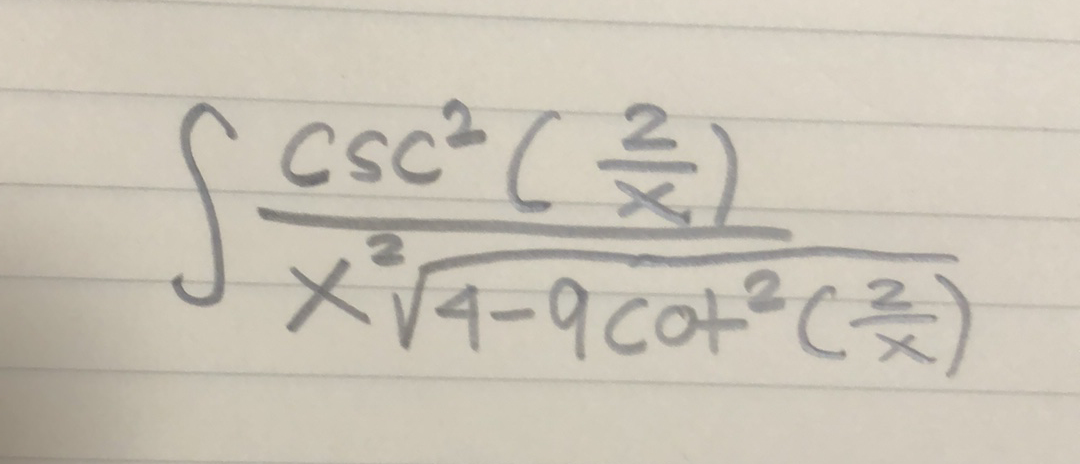 ∫ csc² (2/x) / x²√4-9cot²(2/x)